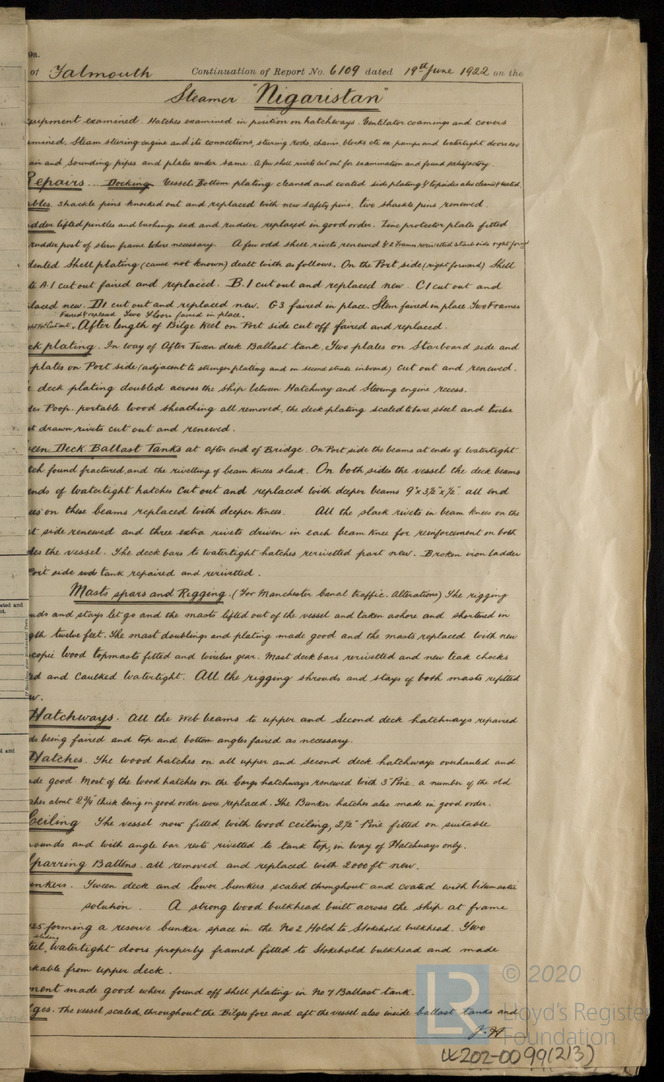 9a.
of Falmouth Continuation of Report No. 6109 dated 19th June 1922 on the
Steamer "Nigaristan"
examined. Hatches examined in position on hatchways. Ventilator coamings and covers
Steam steering engine and its connections, steering rods, chains blocks etc ex. pumps and watertight doors
and Sounding pipes and plates under same. A few shell rivets cut out for examination and found satisfactory.
Repairs... Docking Vessels Bottom plating cleaned and coated side plating & topsides also cleaned & coated.
Shackle pins knocked out and replaced with new safety pins. two shackle pins renewed.
lifted pintles and bushings exd and rudder replaced in good order. Zinc protector plate fitted
rudder post of stern frame where necessary. A few odd shell rivets renewed & 2 Frames rerivetted starbd side right forwd
Shell plating (cause not known) dealt with as follows. On the Port side (right forward) Shell
A.1 cut out faired and replaced. B.1 cut out and replaced new. C1 cut out and
new. D1 cut out and replaced new. G3 faired in place. Stem faired in place Two Frames
Faired & replaced Two floors faired in place.
After length of Bilge Keel on Port side cut off faired and replaced.
plating. In way of After Tween deck Ballast tank, Two plates on Starboard side and
plates on Port side (adjacent to stringer plating and in second strake inboard) cut out and renewed.
deck plating doubled across the ship between Hatchway and Steering engine recess.
Poop. portable wood sheathing all removed, the deck plating scaled to bare steel and twelve
drawn rivets cut out and renewed.
Deck Ballast Tanks at after end of Bridge. On Port side the beams at ends of watertight
found fractured, and the rivetting of beam knees slack. On both sides the vessel the deck beams
ends of watertight hatches cut out and replaced with deeper beams 9"x3½"x½" all end
on these beams replaced with deeper knees. All the slack rivets in beam knees on the
side renewed and three extra rivets driven in each beam knee for reinforcement on both
the vessel. The deck bars to watertight hatches rerivetted part new. Broken iron ladder
Port side tank repaired and rerivetted.
Masts spars and Rigging. (For Manchester Canal traffic. Alterations) The rigging
and stays let go and the masts lifted out of the vessel and taken ashore and shortened in
twelve feet. The mast doublings and plating made good and the masts replaced with new
wood topmasts fitted and wireless gear. Mast deck bars rerivetted and new teak chocks
and caulked watertight. All the rigging shrouds and stays of both masts refitted
Hatchways. All the web beams to upper and second deck hatchways repaired
being faired and top and bottom angles faired as necessary.
Hatches. The wood hatches on all upper and second deck hatchways overhauled and
good. Most of the wood hatches on the Cargo hatchways renewed with 3" Pine. a number of the old
about 2¾" thick being in good order were replaced. The Bunker hatches also made in good order.
Ceiling The vessel now fitted with wood ceiling, 2½" Pine fitted on suitable
and with angle bar rests rivetted to tank top, in way of Hatchways only.
Sparring Battens. all removed and replaced with 2000 ft new.
Tween deck and lower bunkers scaled throughout and coated with bitumastic
solution. A strong wood bulkhead built across the ship at frame
forming a reserve bunker space in the No 2 Hold to Stokehold bulkhead. Two
sliding
watertight doors properly framed fitted to Stokehold bulkhead and made
from upper deck.
made good where found off shell plating in No 7 Ballast tank.
The vessel scaled throughout the Bilges fore and aft the vessel also inside ballast tanks and
LR © 2020
Lloyd's Register
Foundation
LK202-0099(2/3)